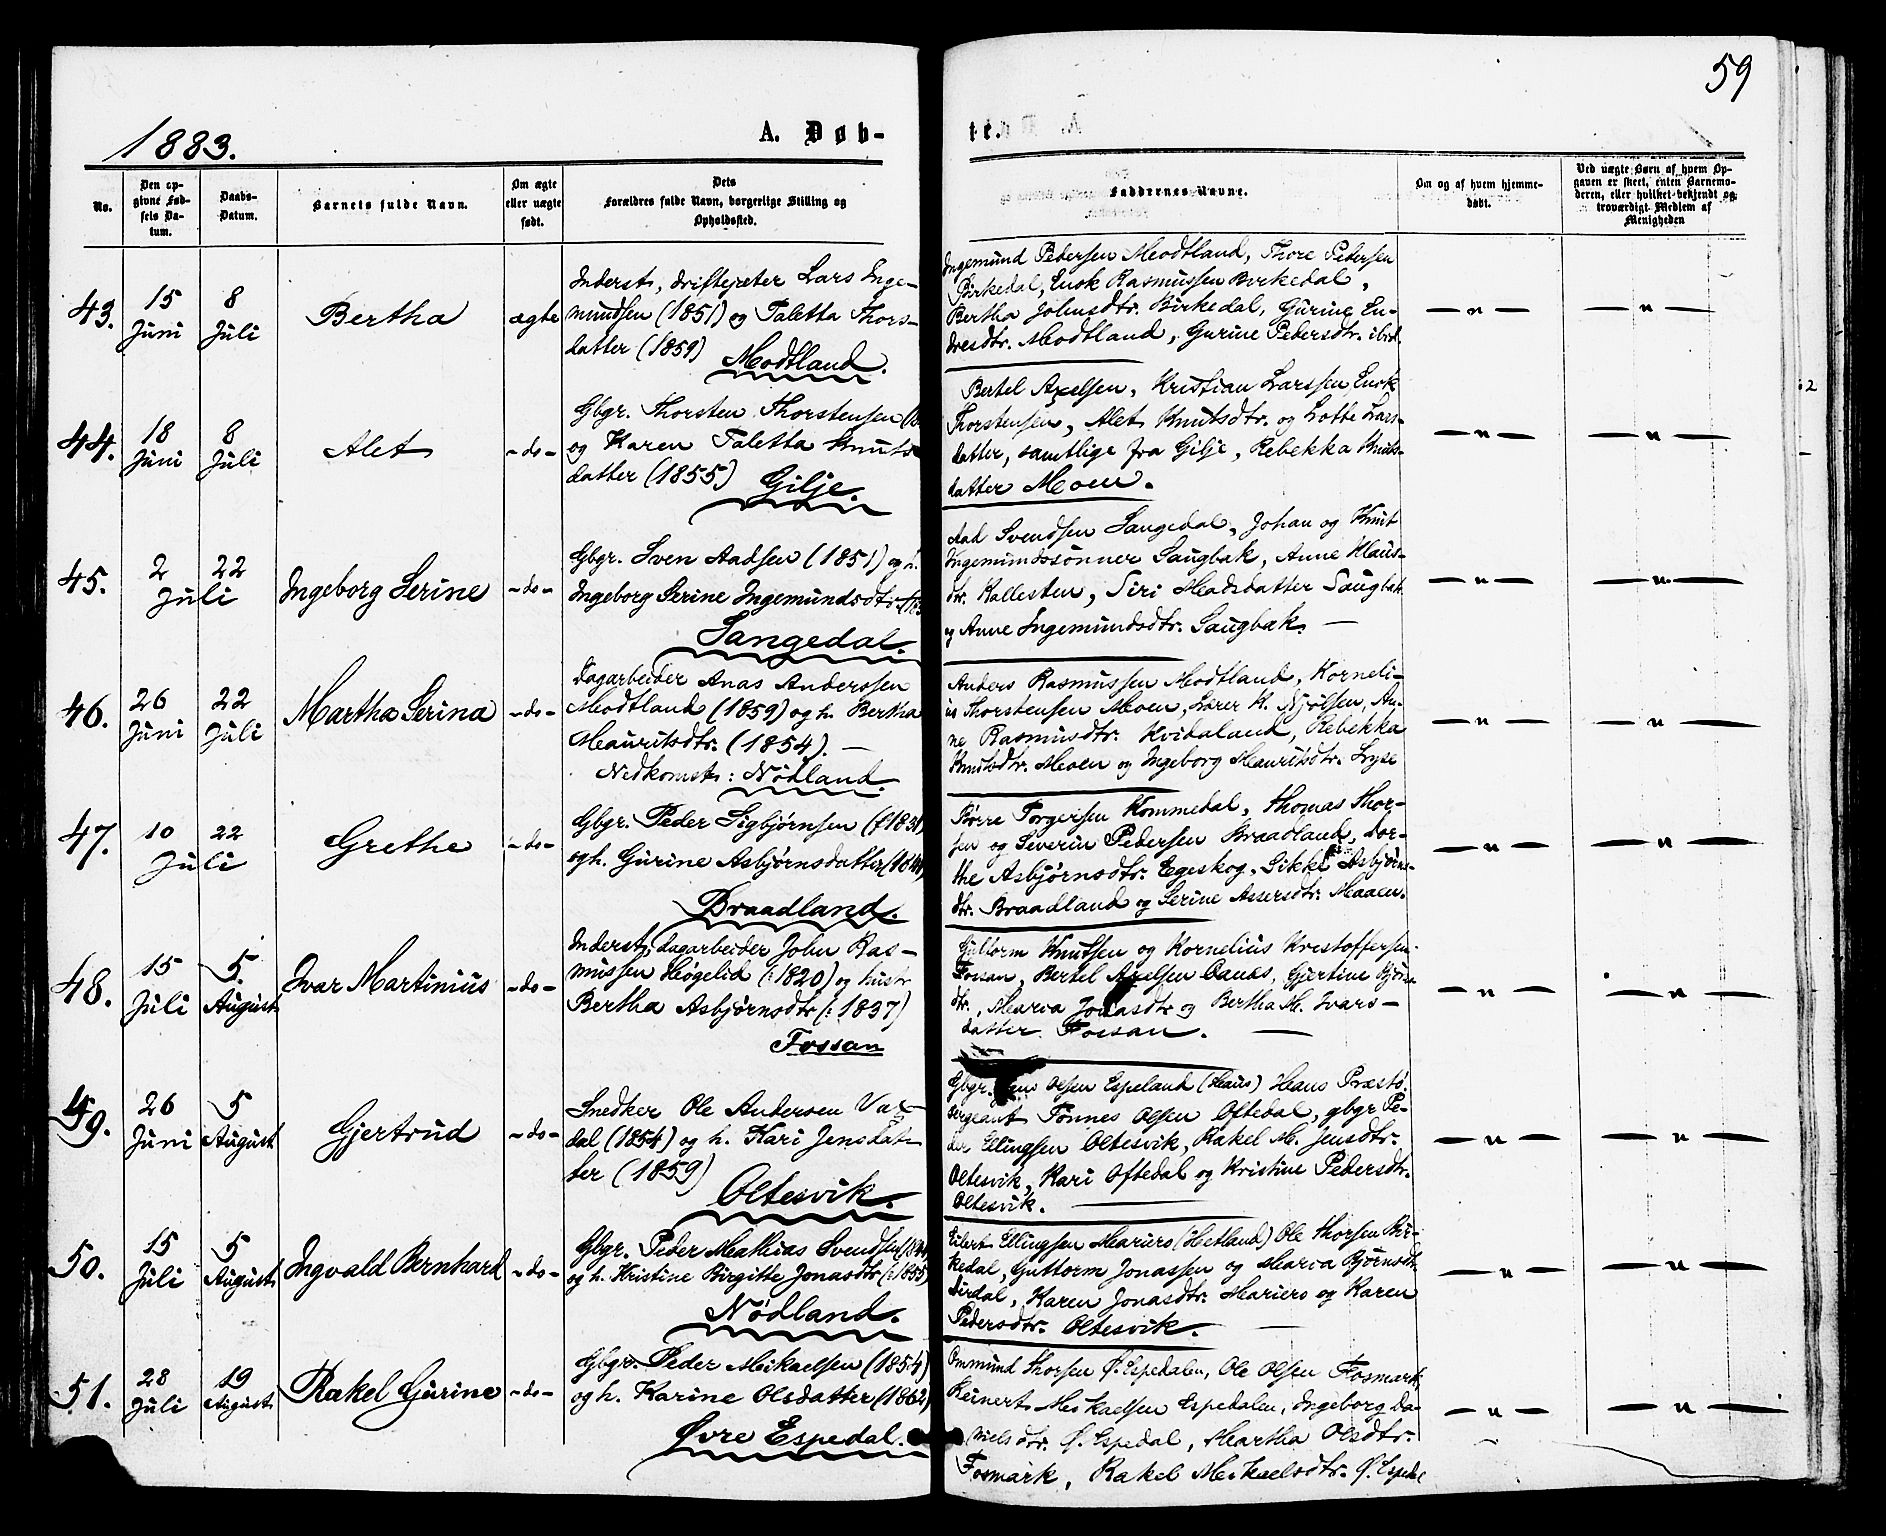 59
1883.
A. Døb-
te.
No.
Den op-
givne Fød-
sels Da-
tum.
Daabs-
Datum.
Barnets fulde Navn.
Om ægte
eller uægte
født.
Dets
Forældres fulde Navn, borgerlige Stilling og
Opholdssted.
Faddernes Navne.
Om og af hvem hjemme-
døbt.
Ved uægte Børn af hvem Op-
gaven er skeet, enten Barnemo-
deren, eller hvilket bekjendt og
troværdigt Medlem af
Menigheden
43.
15
Juni
8
Juli
Bertha
ægte
Inderst, driftejæter Lars Inge-
mundsen (1851) og Taletta Thors-
datter (1859)
Modtland.
Ingemund Pedersen Modtland, Thore Pedersen
Birkedal, Enok Rasmussen Birkedal,
Bertha Johnsdtr. Birkedal, Gurine En-
dresdtr. Modtland, Gurine Pedersdtr. ibid.
— " —
— " —
44.
18
Juni
8
Juli
Alet
- do -
Gbgr. Thorsten Thorstensen
og Karen Taletta Knuts-
datter (1855)
Gilje.
Bertel Axelsen, Kristian Larssen, Enok
Thorstensen, Alet Knutsdtr. og Lotte Lars-
datter, samtlige fra Gilje, Rebekka Knuts-
datter Moen.
— " —
— " —
45.
2
Juli
22
Ingeborg Serine
- do -
Gbgr. Sven Aadsen (1851) og h.
Ingeborg Serine Ingemundsdtr.
Sangedal.
Aad Svendsen Sangedal, Johan og Knut
Ingemundssønner Saugbak, Anne Klaus-
dtr. Kallesten, Siri Madsdatter Saugbak
og Anne Ingemundsdtr. Saugbak. —
— " —
— " —
46.
26
Juni
22
Juli
Martha Serina
- do -
Dagarbeider Anas Anderssen
Modtland (1859) og h. Bertha
Mauritsdtr. (1854). —
Nedkomst: Nødland.
Anders Rasmussen Modtland, Korneli-
us Thorstensen Moen, Lærer K. Njølsen, An-
ne Rasmusdtr. Kvidaland, Rebekka
Knutsdtr. Moen og Ingeborg Mauritsdtr. Lyse
— " —
— " —
47.
10
Juli
22
Grethe
- do -
Gbgr. Peder Sigbjørnsen
og h. Gurine Asbjørnsdatter
Braadland.
Børre Torgersen Kommedal, Thomas Thor-
sen og Severin Pedersen Braadland, Dor-
the Asbjørnsdtr. Egeskog, Sikke Asbjørns-
dtr. Braadland og Serine Assersdtr. Maaen.
— " —
— " —
48.
15
Juli
5
August
Ivar Martinius
- do -
Inderst, dagarbeider John Ras-
mussen Høgelid (: 1820) og hustr
Bertha Asbjørnsdtr (: 1837)
Fossan
Guttorm Knutsen og Kornelius Kristoffersen
Fossan, Bertel Axelsen Oanes, Gjertine
dtr., Marva Jonasdtr og Bertha M. Ivars-
datter Fossan. —
— " —
— " —
49.
26
Juni
5
August
Gjertrud
- do -
Snedker Ole Andersen Var-
dal (1854) og h. Kari Jensdat-
ter (1859)
Oltesvik.
Gbgr. Olsen Espeland (Haus) Hans Præstø.
Sergeant Tønnes Olsen Oftedal, gbgr Pe-
der Ellingsen Oltesvik, Rakel M. Jensdtr.
Oltesvik, Kari Oftedal og Kristine Pedersdtr.
Oltesvik. —
— " —
— " —
50.
15
Juli
5
August
Ingvald Bernhard
- do -
Gbgr. Peder Mathias Svendsen
og h. Kristine Birgitte Jonasdtr (: 1855)
Nødland.
Eilert Ellingsen Mariero (Hetland) Ole Thorsen Bir-
kedal, Guttorm Jonassen og Marva Bjørnsdt
Dirdal, Karen Jonasdtr. Mariero og Karen
Pedersdtr. Oltesvik. —
— " —
— " —
51.
28
Juli
19
August
Rakel Gurine
- do -
Gbgr. Peder Mikaelsen (1854)
og h. Karine Olsdatter (1862)
Øvre Espedal.
Ommund Thorsen Ø. Espedalen, Ole Olsen Fosmark,
Reinert Mikaelsen Espedalen, Ingeborg Da-
nielsdtr. Ø. Espedal, Martha Olsdtr.
Fosmark, Rakel Mikaelsdtr. Ø. Espedal
— " —
— " —